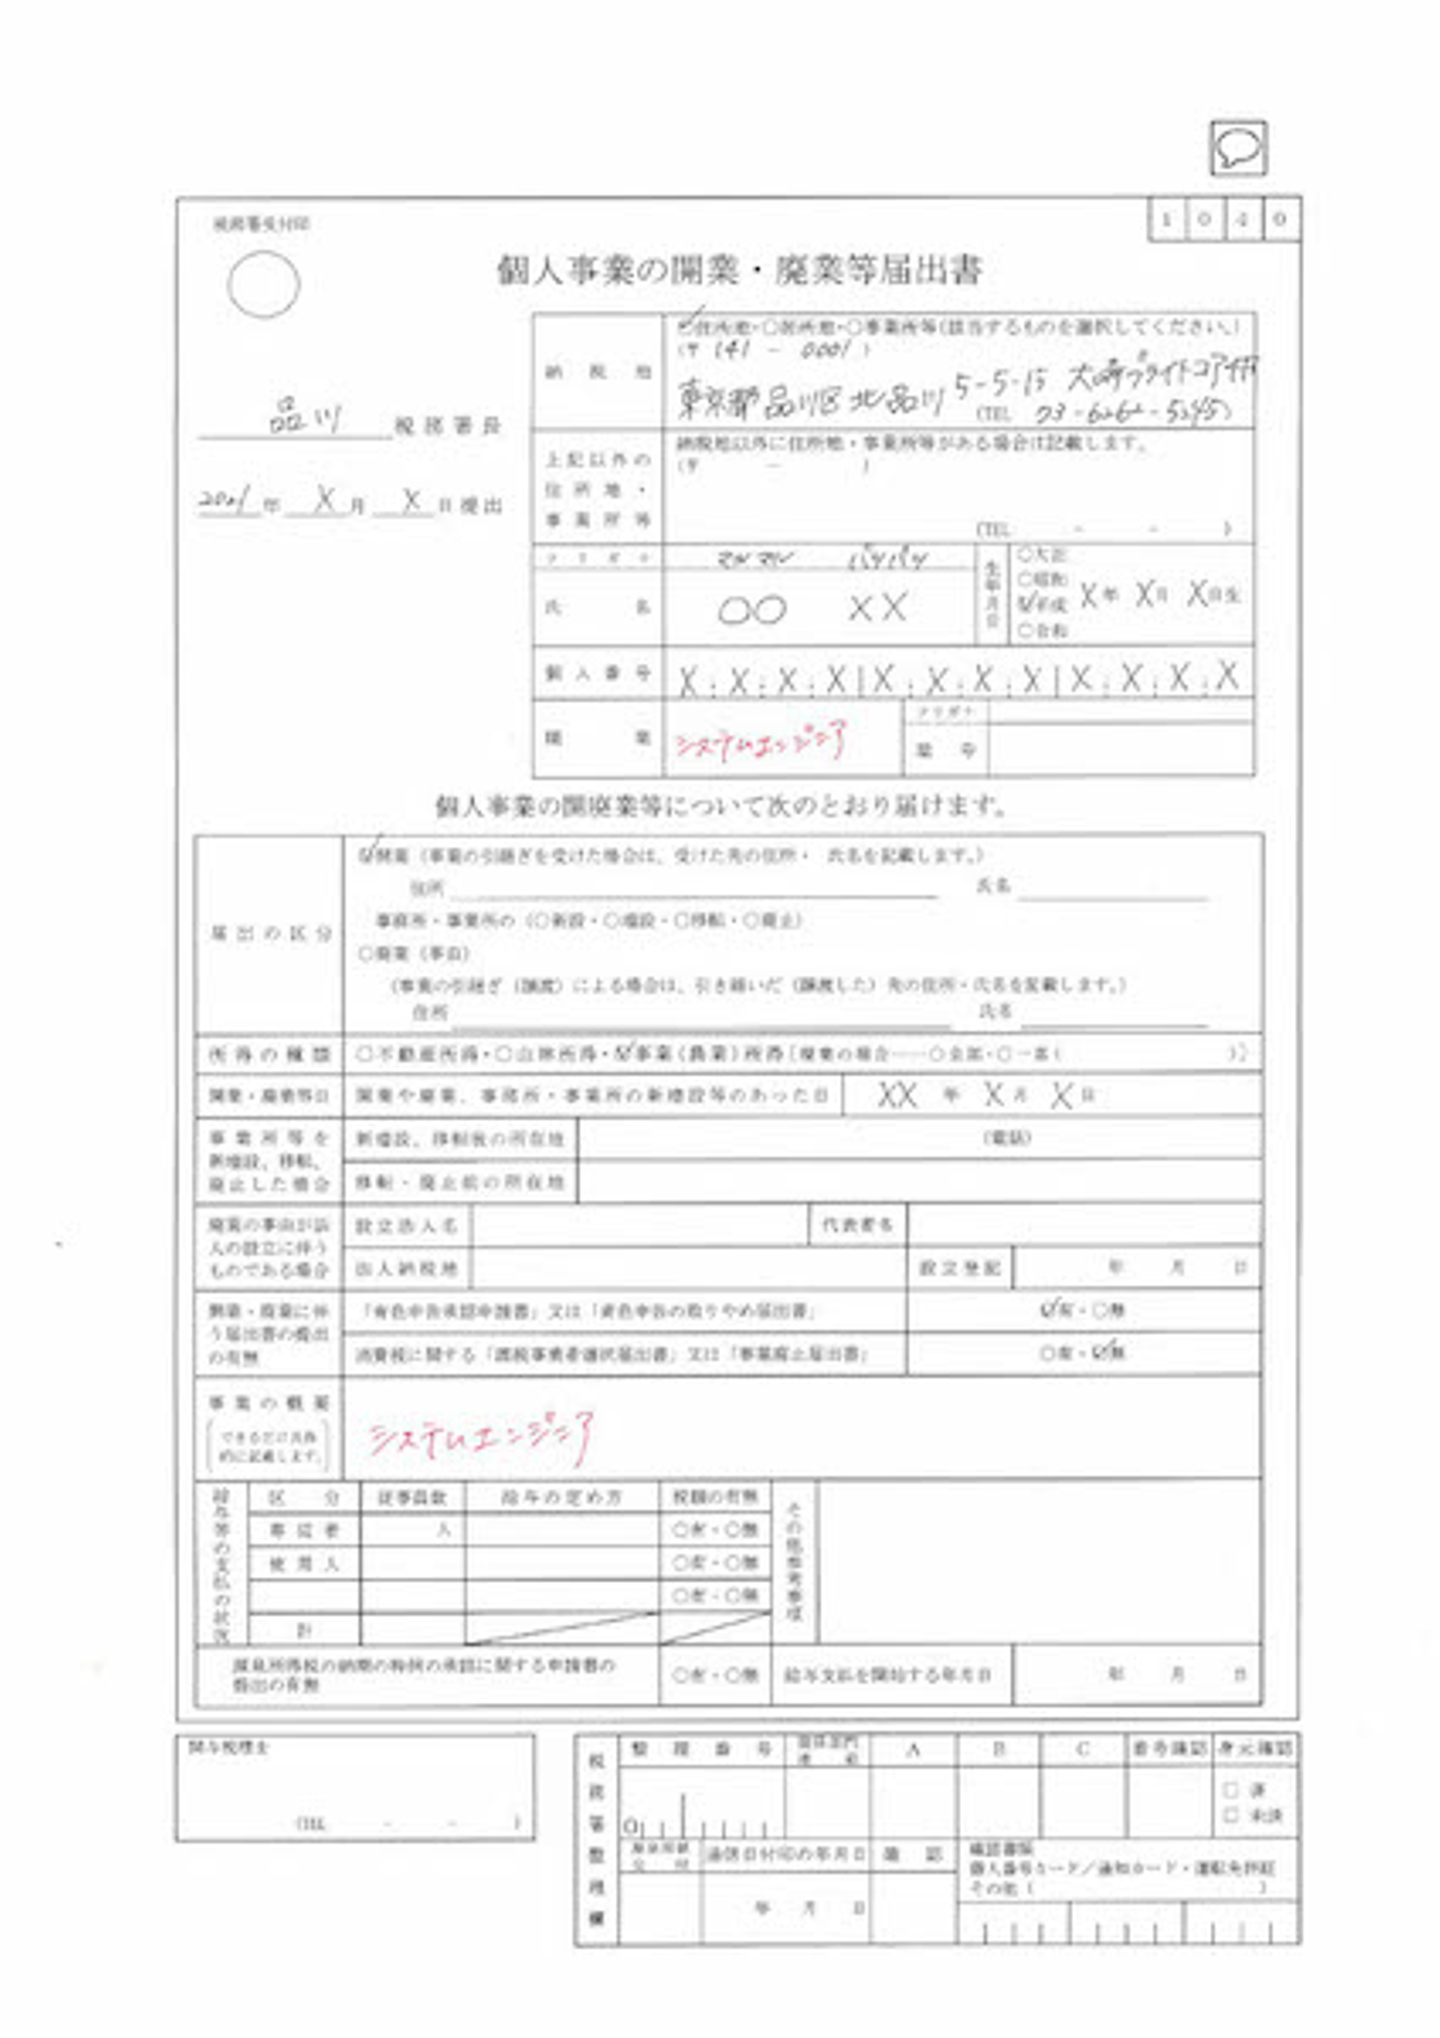 税務署受付印
1040
個人事業の開業・廃業等届出書
納税地
☑住所地・○居所地・○事業所等(該当するものを選択してください。)
(〒141-0001)
東京都品川区北品川5-5-15 大崎ブライトコア4階
(TEL 03-6262-5245)
品川 税務署長
上記以外の住所地・事業所等
納税地以外に住所地・事業所等がある場合は記載します。
(〒 - )
(TEL - - )
2021年X月X日提出
フリガナ
マルマル バツバツ
氏名
○○ XX
生年月日
○大正
○昭和
☑平成
○令和
X年X月X日生
個人番号
X X X X X X X X X X X X
職業
システムエンジニア
フリガナ
屋号
個人事業の開廃業等について次のとおり届けます。
届出の区分
☑開業(事業の引継ぎを受けた場合は、受けた先の住所・氏名を記載します。)
住所 氏名
事務所・事業所の(○新設・○増設・○移転・○廃止)
○廃業(事由)
(事業の引継ぎ(譲渡)による場合は、引き継いだ(譲渡した)先の住所・氏名を記載します。)
住所 氏名
所得の種類
○不動産所得・○山林所得・☑事業(農業)所得[廃業の場合……○全部・○一部( )]
開業・廃業等日
開業や廃業、事務所・事業所の新増設等のあった日
XX年X月X日
事業所等を新増設、移転、廃止した場合
新増設、移転後の所在地 (電話)
移転・廃止前の所在地
廃業の事由が法人の設立に伴うものである場合
設立法人名
代表者名
法人納税地
設立登記
年 月 日
開業・廃業に伴う届出書の提出の有無
「青色申告承認申請書」又は「青色申告の取りやめ届出書」
☑有・○無
消費税に関する「課税事業者選択届出書」又は「事業廃止届出書」
○有・☑無
事業の概要
(できるだけ具体的に記載します。)
システムエンジニア
給与等の支払の状況
区分 従事員数 給与の定め方 税額の有無
専従者 人 ○有・○無
使用人 ○有・○無
○有・○無
計
その他参考事項
源泉所得税の納期の特例の承認に関する申請書の提出の有無
○有・○無
給与支払を開始する年月日
年 月 日
関与税理士
(TEL - - )
税務署整理欄
整理番号 関係部門連絡 A B C 番号確認 身元確認
0
□ 済
□ 未済
源泉用紙交付
通信日付印の年月日
確認
年 月 日
確認書類
個人番号カード/通知カード・運転免許証
その他( )